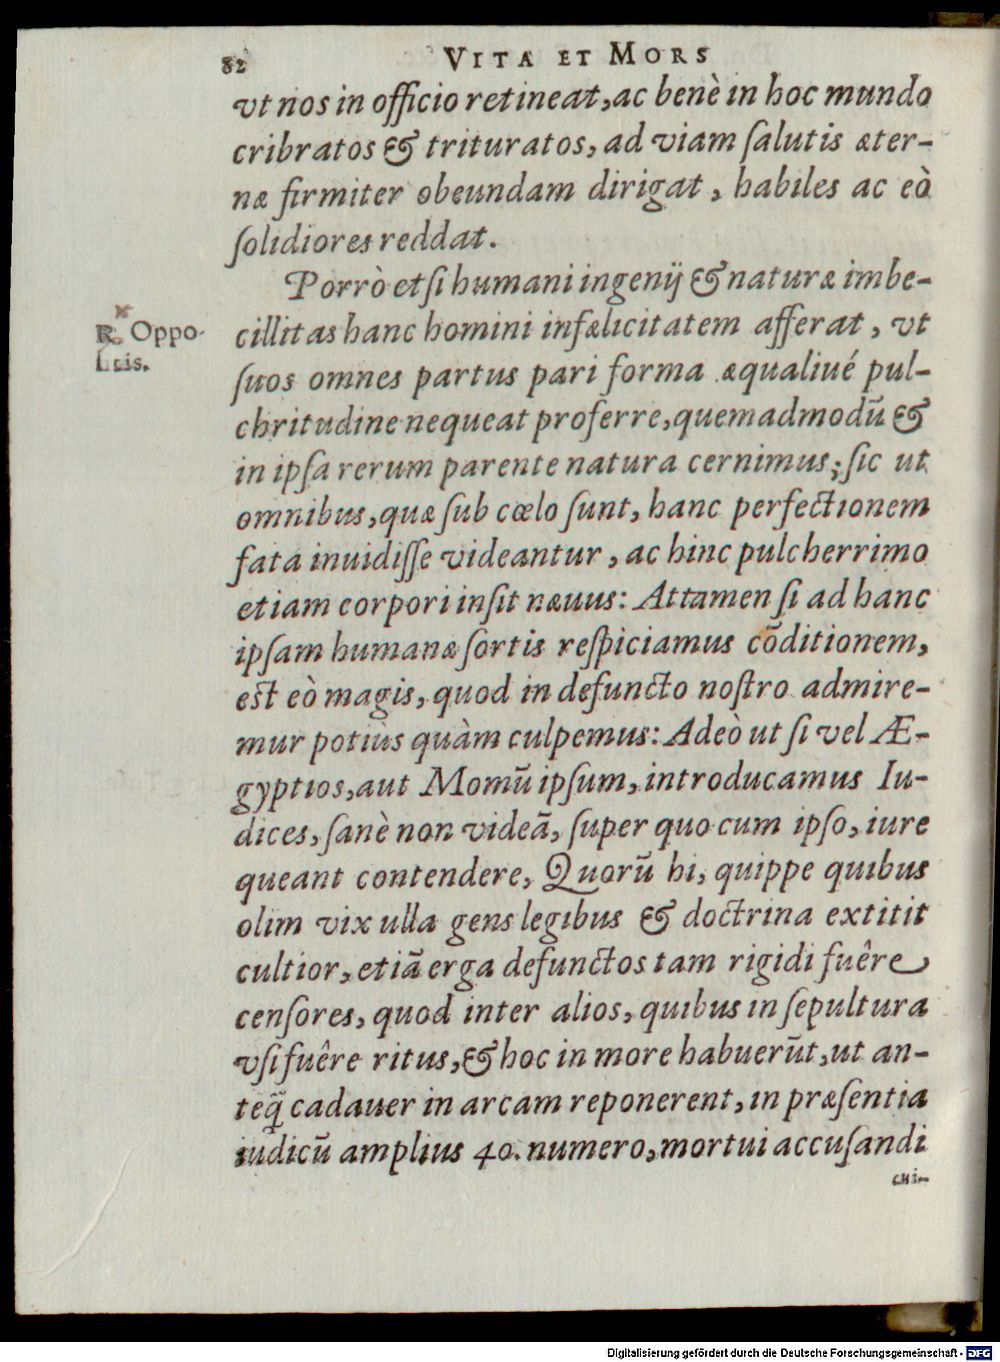 82 VITA ET MORS
vt nos in officio retineat, ac benè in hoc mundo
cribratos & trituratos, ad viam ſalutis æter-
næ firmiter obeundam dirigat, habiles ac eò
ſolidiores reddat.
Porrò etſi humani ingenij & naturæ imbe-
cillitas hanc homini infælicitatem afferat, vt
R. Oppo-
ſuos omnes partus pari forma æqualiué pul-
chritudine nequeat proferre, quemadmodū &
in ipſa rerum parente natura cernimus; ſic ut
omnibus, quæ ſub cœlo ſunt, hanc perfectionem
fata inuidiſſe videantur, ac hinc pulcherrimo
etiam corpori inſit næuus: Attamen ſi ad hanc
ipſam humanæ ſortis reſpiciamus cōditionem,
est eò magis, quod in defuncto noſtro admire-
mur potiùs quàm culpemus: Adeò ut ſi vel Æ-
gyptios, aut Momū ipſum, introducamus Iu-
dices, ſanè non videā, ſuper quo cum ipſo, iure
queant contendere, Quorū hi, quippe quibus
olim vix ulla gens legibus & doctrina extitit
cultior, etiā erga defunctos tam rigidi fuêre
cenſores, quod inter alios, quibus in ſepultura
vſi fuêre ritus, & hoc in more habuerūt, ut an-
teq̃ cadauer in arcam reponerent, in præſentia
iudicū amplius 40. numero, mortui accuſandi
cui-
Digitalisierung gefördert durch die Deutsche Forschungsgemeinschaft - DFG